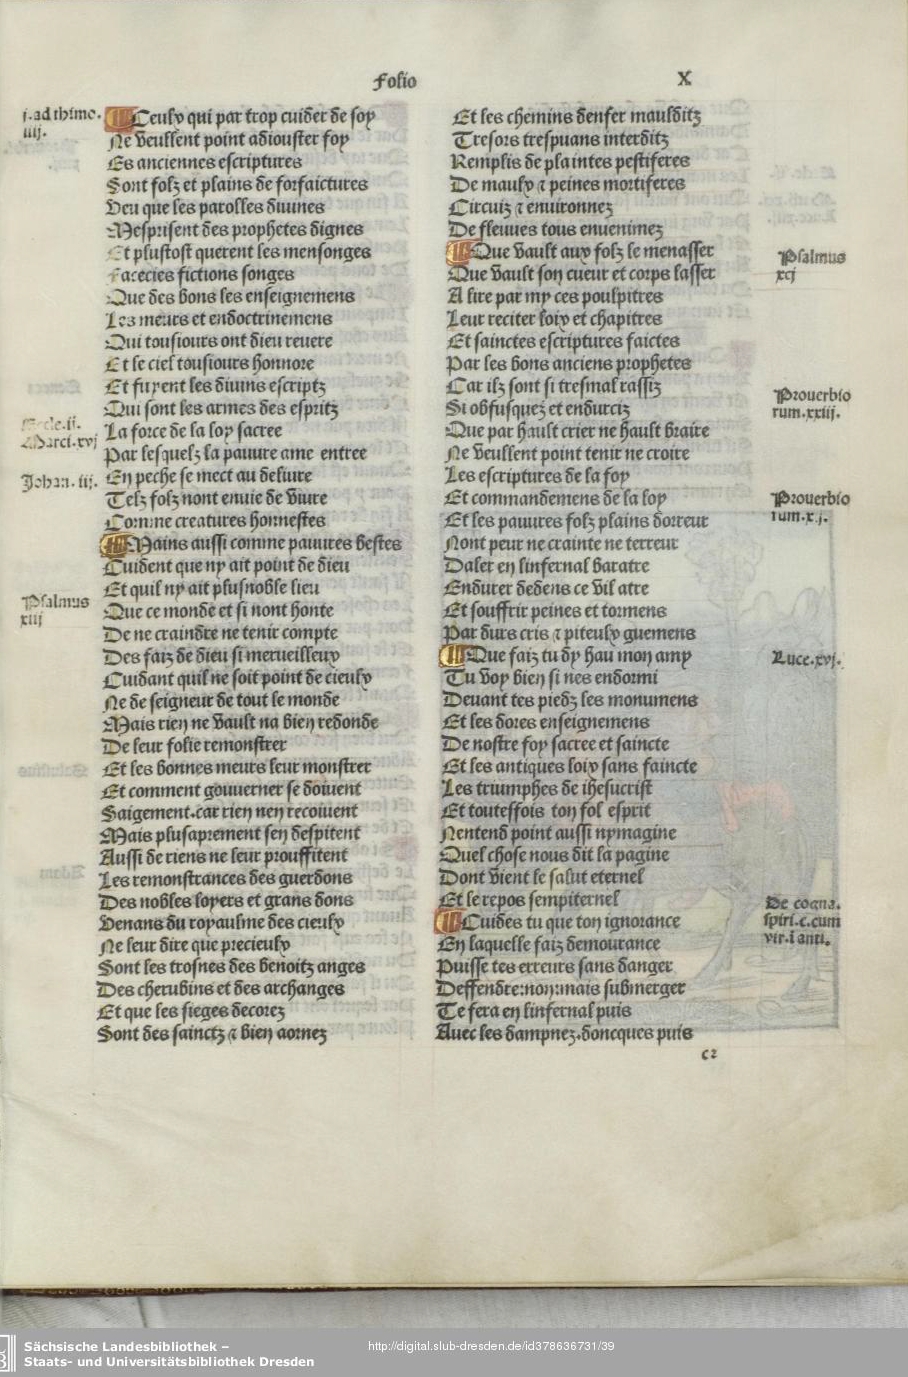 Folio X
i.ad thimo.
iiij.
Ceulx qui par trop cuider de soy
Ne veullent point adiouster foy
Es anciennes escriptures
Sont folz et plains de forfaictures
Veu que les parolles diuines
Mesprisent des prophetes dignes
Et plustost querent les mensonges
Facecies fictions songes
Que des bons les enseignemens
Les meurs et endoctrinemens
Qui tousiours ont dieu reuere
Et le ciel tousiours honnore
Et fuyent les diuins escriptz
Qui sont les armes des espritz
La force de la loy sacree
Par lesquelz la pauure ame entree
En peche se mect au deliure
Telz folz nont enuie de viure
Comme creatures honnestes
Mains aussi comme pauures bestes
Cuident que ny ait point de dieu
Et quil ny ait plus noble lieu
Que ce monde et si nont honte
De ne craindre ne tenir compte
Des faiz de dieu si merueilleux
Cuidant quil ne soit point de cieulx
Ne de seigneur de tout le monde
Mais rien ne vault na bien redonde
De leur folie remonstrer
Et les bonnes meurs leur monstrer
Et comment gouuerner se doiuent
Saigement.car rien nen recoiuent
Mais plus aprement sen despitent
Aussi de riens ne leur prouffitent
Les remonstrances des guerdons
Des nobles loyers et grans dons
Venans du royaulme des cieulx
Ne leur dire que precieulx
Sont les trosnes des benoitz anges
Des cherubins et des archanges
Et que les sieges decorez
Sont des sainctz ⁊ bien aornez
ii.
Marci.xvj
Johan.iij.
Psalmus
xiij
Et les chemins denfer maulditz
Tresors trespuans interditz
Remplis de plaintes pestiferes
De maulx ⁊ peines mortiferes
Circuiz ⁊ enuironnez
De fleuues tous enuenimez
Que vault aux folz le menasser
Que vault son cueur et corps lasser
A lire par my ces poulpitres
Leur reciter loix et chapitres
Et sainctes escriptures faictes
Par les bons anciens prophetes
Car ilz sont si tresmal rassiz
Si obfusquez et endurciz
Que par hault crier ne hault braire
Ne veullent point tenir ne croire
Les escriptures de la foy
Et commandemens de la loy
Et les pauures folz plains dorreur
Nont peur ne crainte ne terreur
Daler en linfernal baratre
Endurer dedens ce vil atre
Et souffrir peines et tormens
Par durs cris ⁊ piteulx guemens
Que faiz tu dy hau mon amy
Tu voy bien si nes endormi
Deuant tes piedz les monumens
Et les dores enseignemens
De nostre foy sacree et saincte
Et les antiques loix sans faincte
Les triumphes de ihesucrist
Et touteffois ton fol esprit
Nentend point aussi nymagine
Quel chose nous dit la pagine
Dont vient le salut eternel
Et le repos sempiternel
Cuides tu que ton ignorance
En laquelle faiz demourance
Puisse tes erreurs sans danger
Deffendre:non:mais submerger
Te fera en linfernal puis
Auec les dampnez.doncques puis
c2
Psalmus
xcj
Prouerbio
rum.xxiij.
Prouerbio
rum.x.j.
Luce.xvj.
De cogna.
spiri.c.cum
vir.i anti.
Sächsische Landesbibliothek –
Staats- und Universitätsbibliothek Dresden
http://digital.slub-dresden.de/id378636731/39